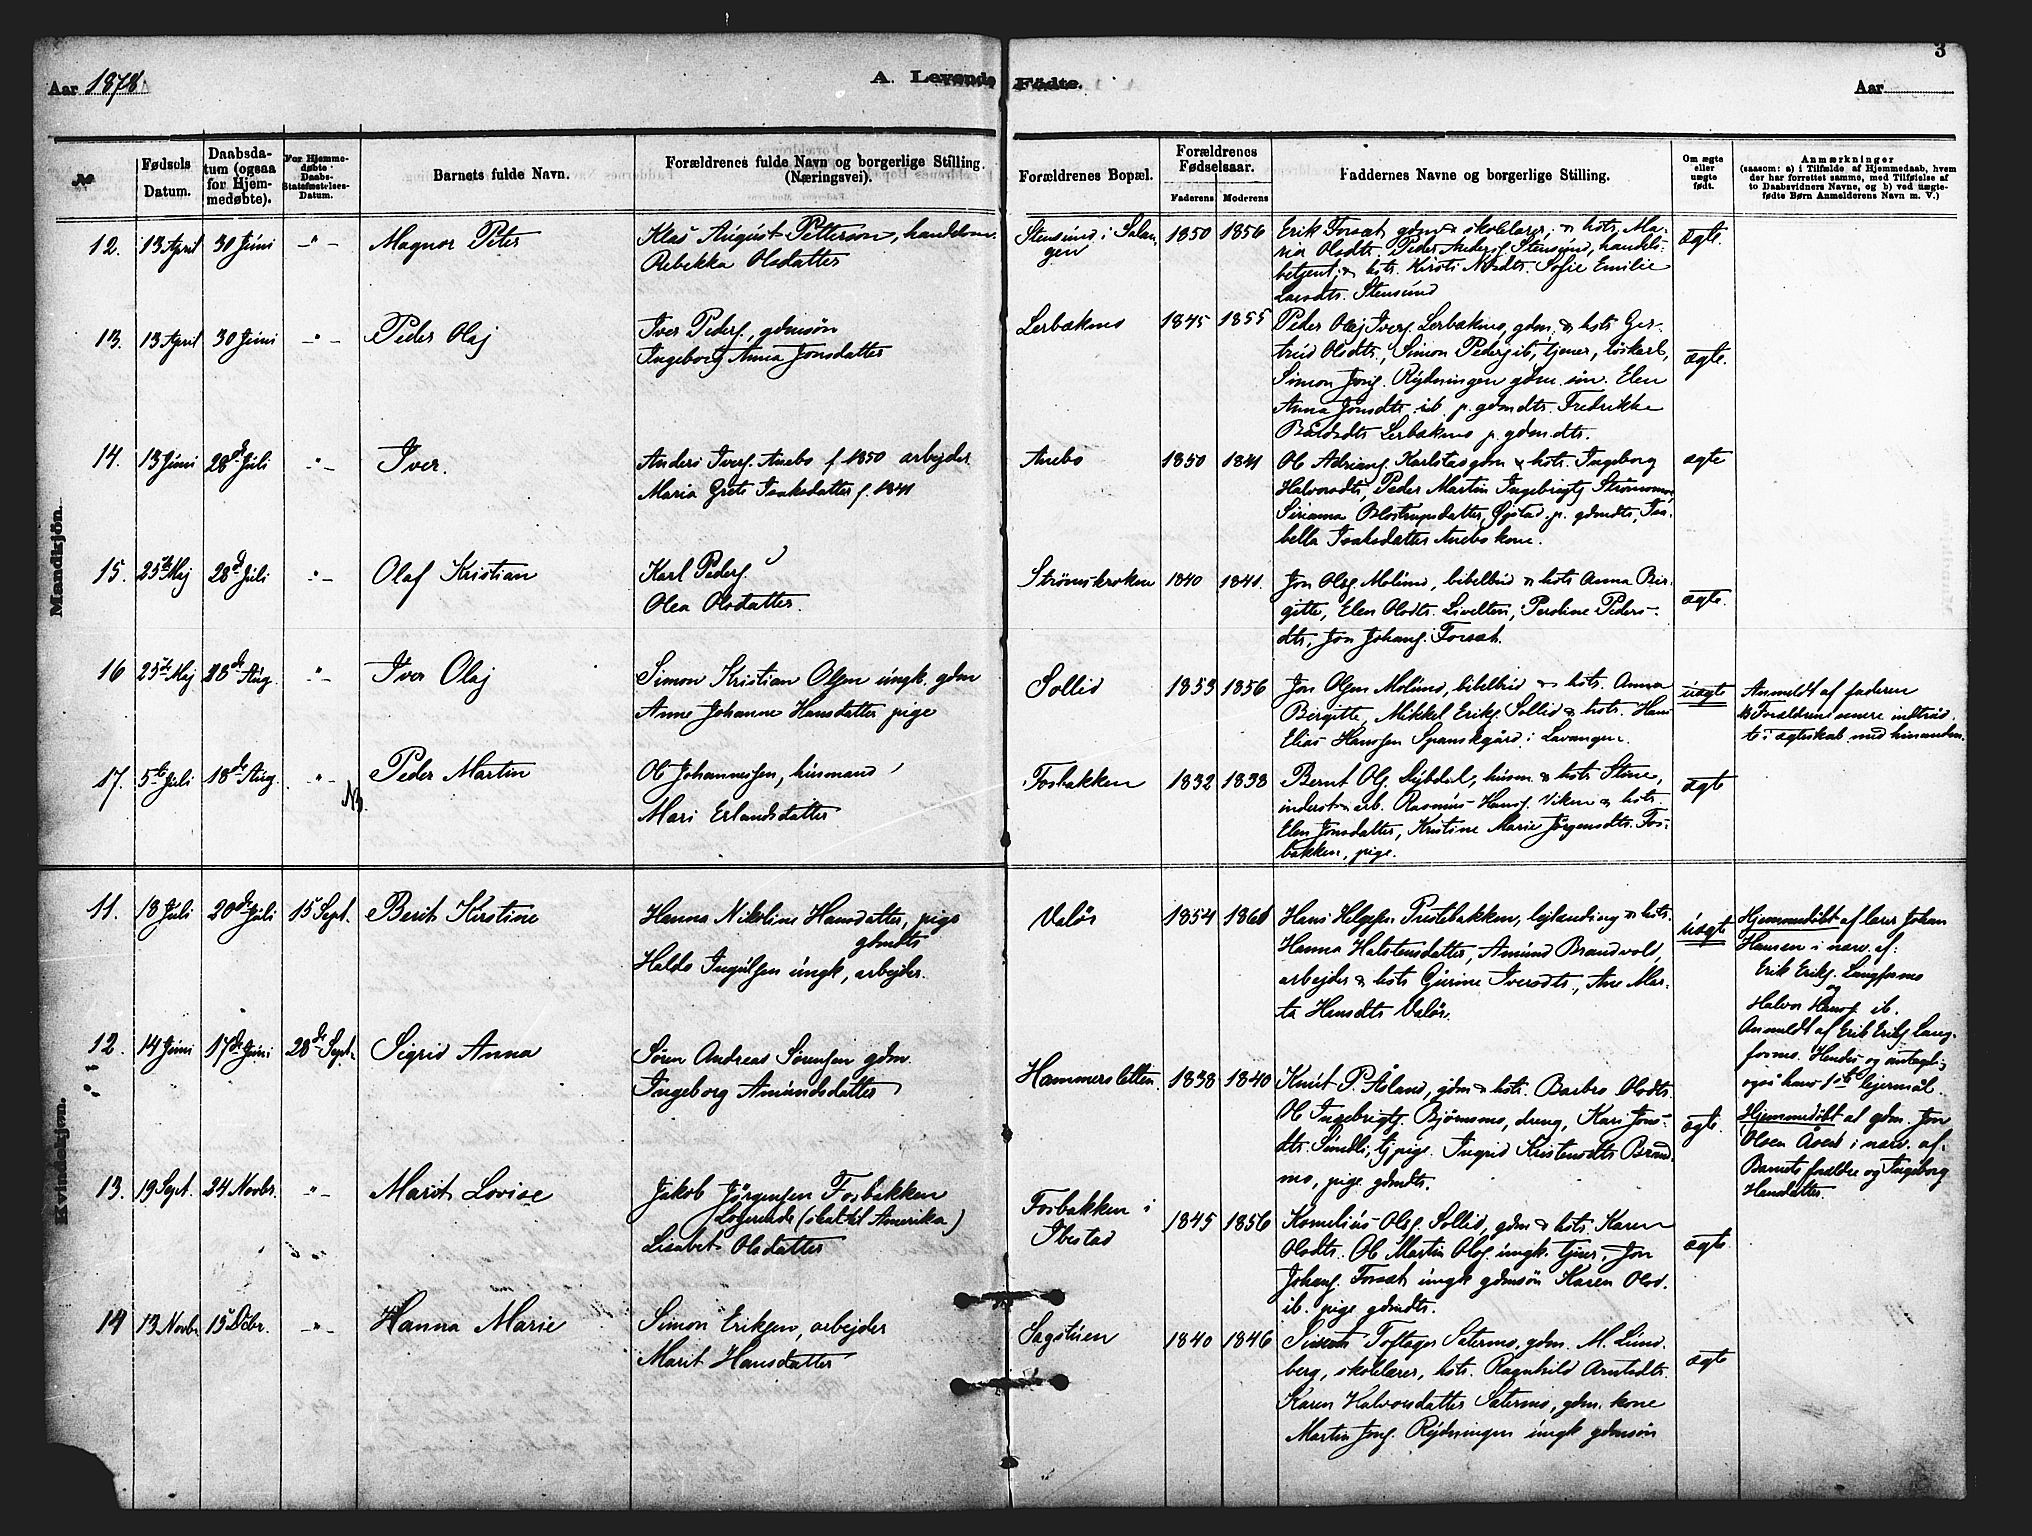 3
Aar 1878
A. Levende Födte.
Aar
№
Fødsels Datum.
Daabsdatum (ogsaa for Hjemmedøbte).
For Hjemmedøbte Daabs-Stadfæstelses-Datum.
Barnets fulde Navn.
Forældrenes fulde Navn og borgerlige Stilling. (Næringsvei).
Forældrenes Bopæl.
Forældrenes Fødselsaar.
Faderens
Moderens
Faddernes Navne og borgerlige Stilling.
Om ægte eller uægte født.
Anmærkninger
(saasom: a) i Tilfælde af Hjemmedaab, hvem
der har forrettet samme, med Tilføielse af
to Daabsvidners Navne, og b) ved uægte-
fødte Børn Anmelderens Navn m. V.)
Mandkjön.
12. 13 April 30 Juni -"- Magnor Peter
Klas August Petterson, handelsm.
Rebekka Olsdatter
Stensund i Salan-
gen
1850 1856
Erik Forsæt gdm & skolelær. & hstr. Ma-
ria Olsdtr. Peder Anders. Stensund, handels-
betjent, & hstr. Kirsti Nilsdtr. Sofie Emilie
Larsdtr. Stensund
ægte.
13. 13 April 30 Juni -"- Peder Olaj
Iver Peders., gdmsøn
Ingeborg Anna Jonsdatter
Lerbækmo 1845 1855
Peder Olaj Ivers. Lerbækmo, gdm. & hstr. Ger-
trud Olsdtr., Simon Peders ib, tjener, løskarl,
Simon Jons. Rydningen gdm. søn. Elen
Anna Jonsdtr. ib. p. gdmdtr. Fredrikke
Bårdsdtr Lerbækmo p. gdm.dtr.
ægte.
14. 13 Juni 28de Juli -"- Iver.
Anders Ivers. Anebo f. 1850 arbejder
Maria Grete Isaksdatter f. 1841
Anebo 1850 1841
Ol Adrians. Karlstad gdm & hstr. Ingeborg
Halvorsdtr, Peder Martin Ingebrigts Strømsmo,
Sirianna Blostrupsdatter, Øjstad p. gdmdtr, Isa-
bella Isaksdatter Anebo kone.
ægte
15. 25de Maj 28de Juli -"- Olaf Kristian
Karl Peders.
Olea Olsdatter.
Strømskroken 1840 1841.
Jon Olsg Molund, bibelbud & hstr Anna Bir-
gitte, Elen Olsdtr. Livelten, Peroline Peders-
dtr, Jon Johans. Forsæt.
ægte.
16 25de Maj 18de Aug. -"- Iver Olaj
Simon Kristian Olsen ungk. gdm
Anne Johanne Hansdatter pige
Sollid 1853 1856
Jon Olsen Molund, bibelbud & hstr. Anna
Bergitte, Mikkel Eriks. Sollid & hstr. Hans
Elias Hanssen Spanskgård i Lavangen.
uægte
Anmeldt af faderen
NB Forældrene senere indtråd.
te i ægteskab med hinanden.
17. 5te Juli 18de Aug. -"- NB. Peder Martin
Ol Johannessen, husmand
Mari Erlandsdatter
Fosbakken 1832 1838
Bernt Ols. Dybdal, husm. & hstr. Stine,
inderst & arb. Rasmus Hans. Viken & hstr.
Elen Jonsdatter, Kristine Marie Jørgensdtr. Fos-
bakken, pige.
ægte
Kvindekjøn.
11. 18 Juli 20de Juli 15 Sept. Berit Kirstine
Hanna Nikoline Hansdatter, pige
gdmdtr
Haldo Ingulfsen ungk, arbejder.
Valør 1854 1861
Hans Helgesen Prestbakken, lejlænding & hstr.
Hanna Halstensdatter, Amund Brandvold,
arbejder & hstr Gurine Iversdtr, Ane Mar-
ta Hansdtr Valør.
uægte
Hjemmedøbt af lærer Johan
Hansen i nærv. af:
Erik Eriks. Langformo
og
Halvor Hans. ib.
Anmeldt af Erik Eriks Lang-
formo. Hendes og antageli-
også hans 1ste lejermål.
12. 14 Juni 17de Juni 28de Sept. Sigrid Anna
Søren Andreas Sørensen gdm.
Ingeborg Amundsdatter
Hammersletten. 1838 1840
Knut P. Åsland, gdm & hstr. Barbro Olsdtr.
Ol Ingebrigts. Bjørnsmo, dreng, Kari Jons-
dtr. Sundli, tj.pige. Ingrid Kristensdtr Brand-
mo, pige gdmdtr.
ægte.
Hjemmedøbt af gdm. Jon
Olsen Åsen i nærv. af:
Barnets forældre og Ingeborg
Hansdatter.
13. 19 Sept. 24 Novbr. -"- Marit Lovise
Jakob Jørgensen Fosbakken
Logerende (skal til Amerika)
Lisabet Olsdatter
Fosbakken i
Ibestad
1845 1856
Kornelius Ols. Sollid, gdm & hstr. Karen
Olsdtr. Ol Martin Ols. ungk. tjener, Jon
Johans. Forsæt ungk gdmsøn Karen Olsd.
ib. pige gdmdtr.
ægte
14 13 Novbr 15 Dcbr. -"- Hanna Marie
Simon Eriksen, arbejder
Marit Hansdatter
Sagstuen 1840 1846
Toftager Sætermo, gdm. M. Lund-
berg, skolelærer, hstr. Ragnhild Arntsdtr.
Karen Halvorsdatter Sætermo, gdm. kone
Martin Jons. Rydningen ungk gdmsøn
ægte